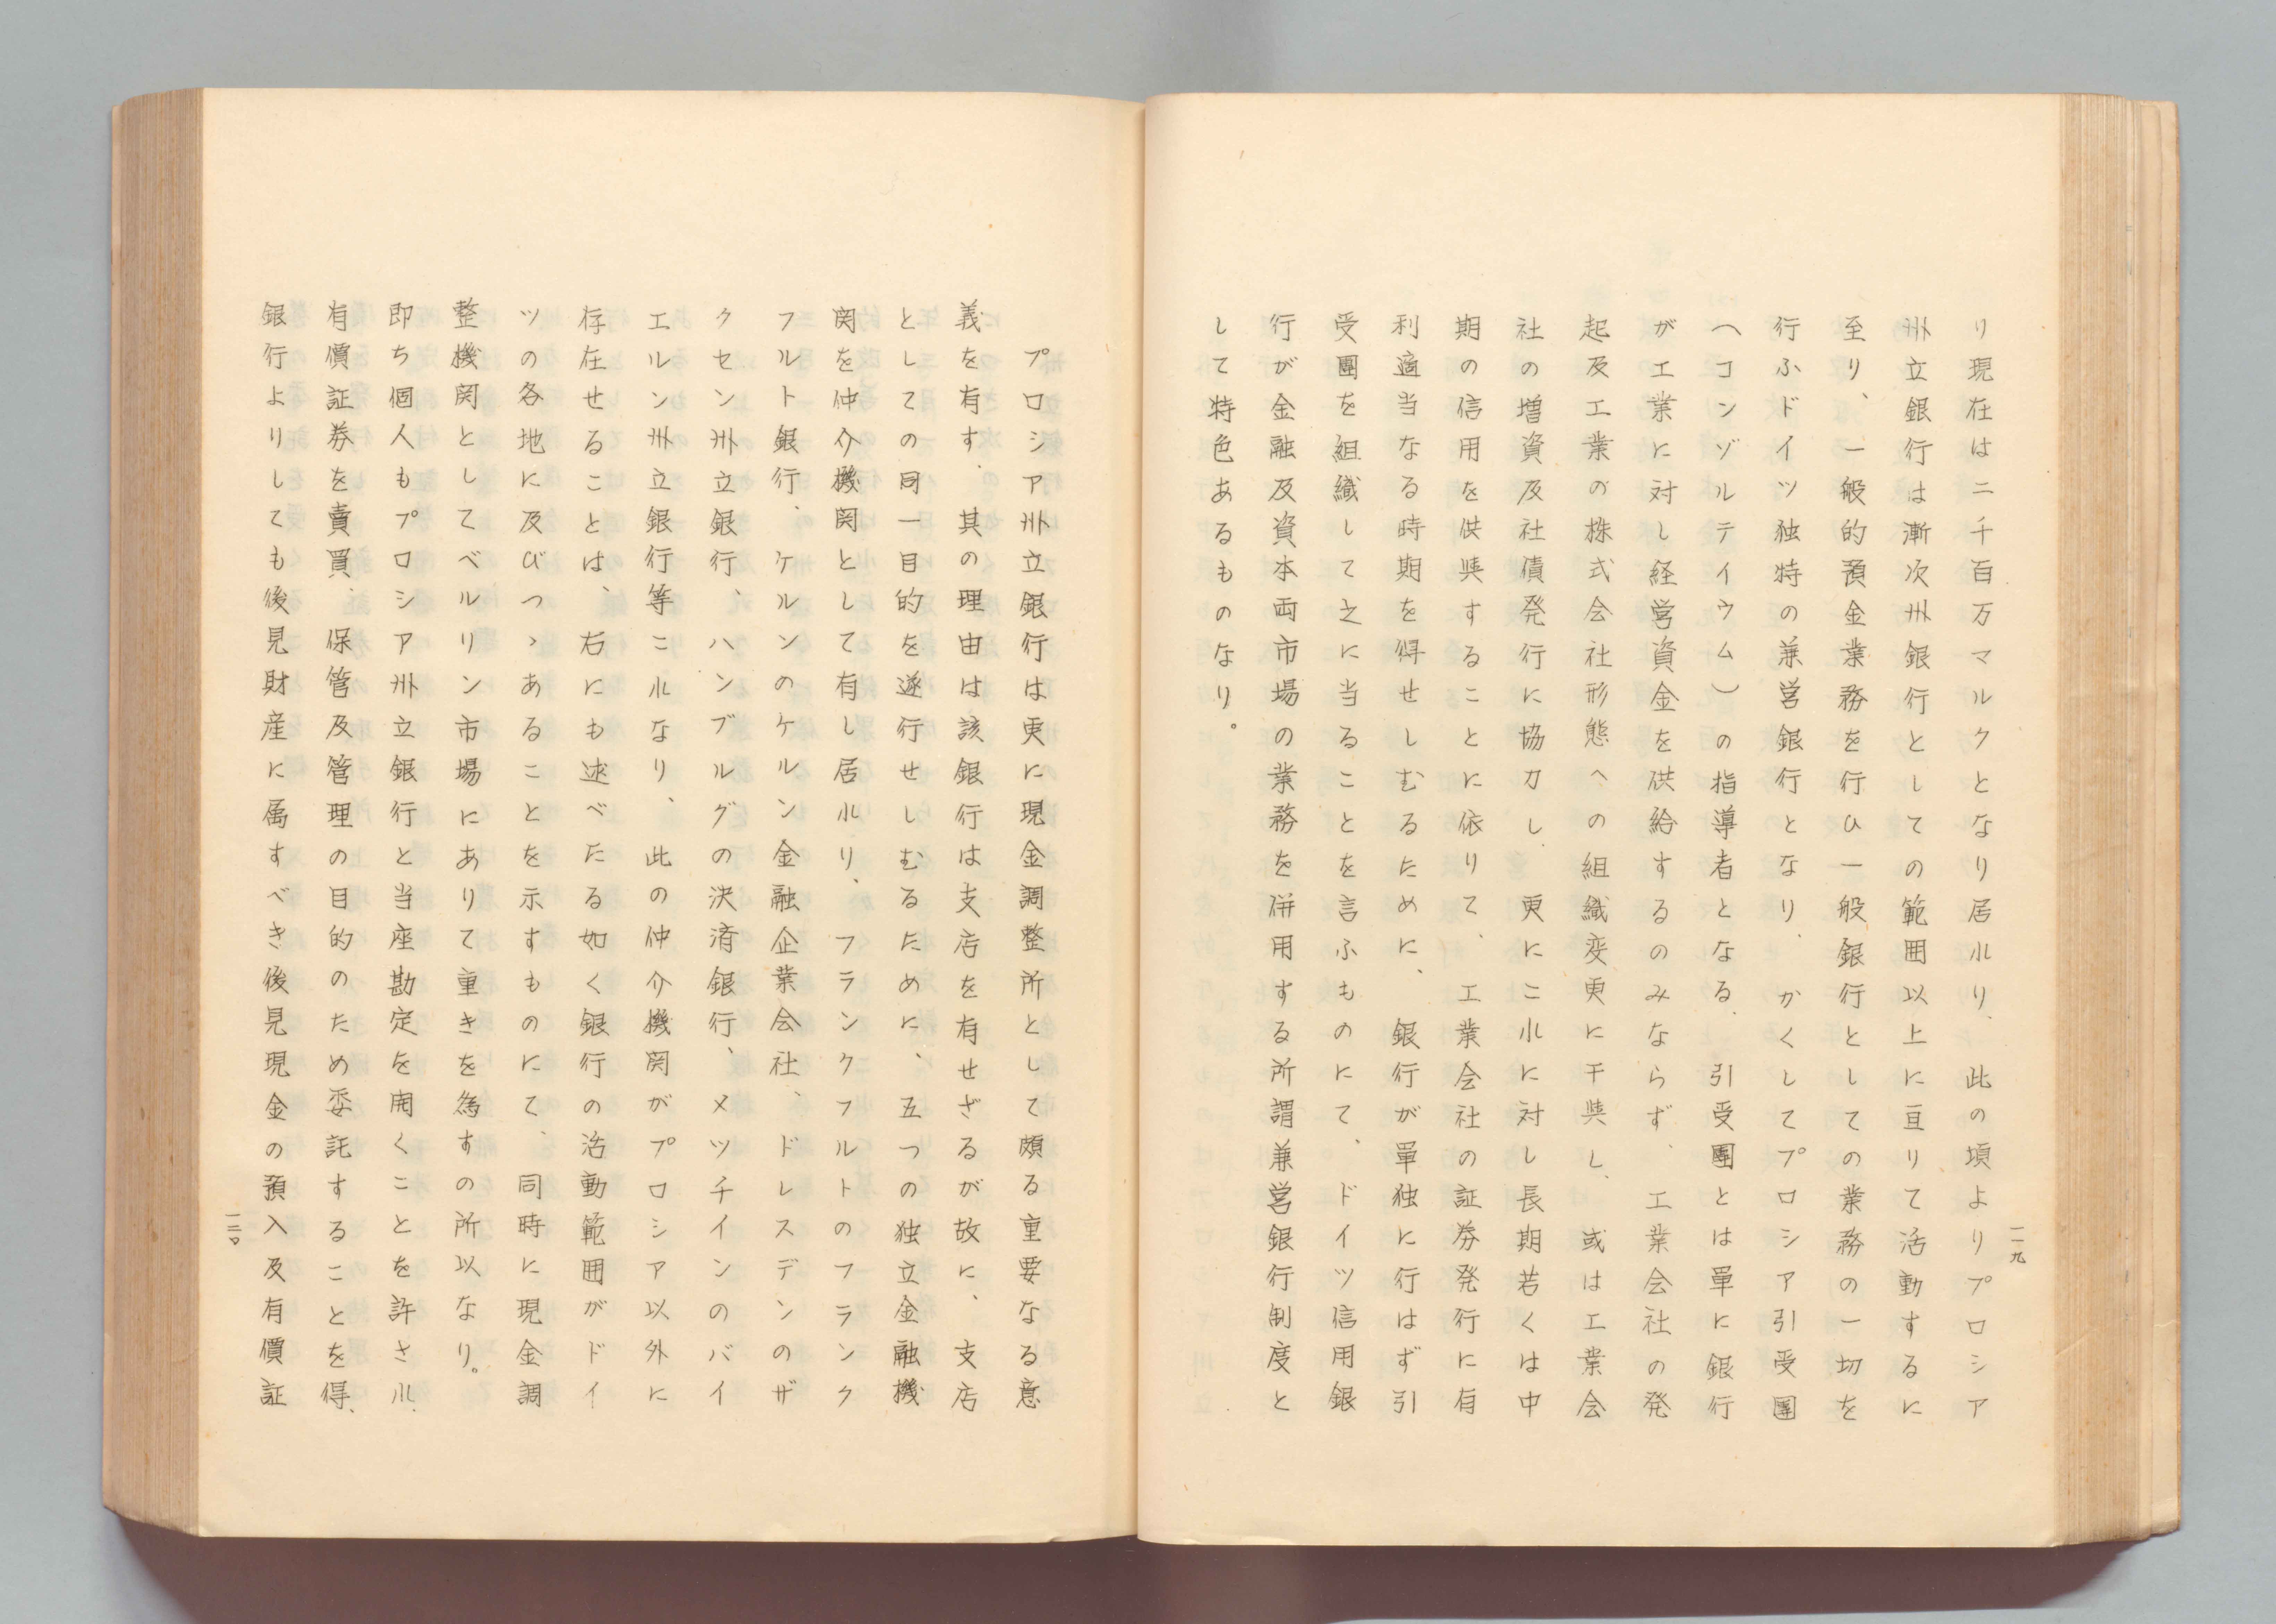 り現在は二千百万マルクとなり居れり、此の頃よりプロシア
州立銀行は漸次州銀行としての範囲以上に亘りて活動するに
至り、一般的預金業務を行ひ一般銀行としての業務の一切を
行ふドイツ独特の兼営銀行となり、かくしてプロシア引受團
(コンゾルテイウム)の指導者となる、引受團とは單に銀行
が工業に対し経営資金を供給するのみならず、工業会社の発
起及工業の株式会社形態への組織変更に干與し、或は工業会
社の増資及社債発行に協力し、更にこれに対し長期若くは中
期の信用を供與することに依りて、工業会社の証券発行に有
利適当なる時期を得せしむるために、銀行が單独に行はず引
受團を組織して之に当ることを言ふものにて、ドイツ信用銀
行が金融及資本両市場の業務を併用する所謂兼営銀行制度と
して特色あるものなり。
一一九
プロシア州立銀行は更に現金調整所として頗る重要なる意
義を有す、其の理由は該銀行は支店を有せざるが故に、支店
としての同一目的を遂行せしむるために、五つの独立金融機
関を仲介機関として有し居れり、フランクフルトのフランク
フルト銀行、ケルンのケルン金融企業会社、ドレスデンのザ
クセン州立銀行、ハンブルグの決済銀行、メツチインのバイ
エルン州立銀行等これなり、此の仲介機関がプロシア以外に
存在せることは、右にも述べたる如く銀行の活動範囲がドイ
ツの各地に及びつゝあることを示すものにて、同時に現金調
整機関としてベルリン市場にありて重きを為すの所以なり。
即ち個人もプロシア州立銀行と当座勘定を開くことを許され、
有價証券を賣買、保管及管理の目的のため委託することを得、
銀行よりしても後見財産に属すべき後見現金の預入及有價証
一二〇